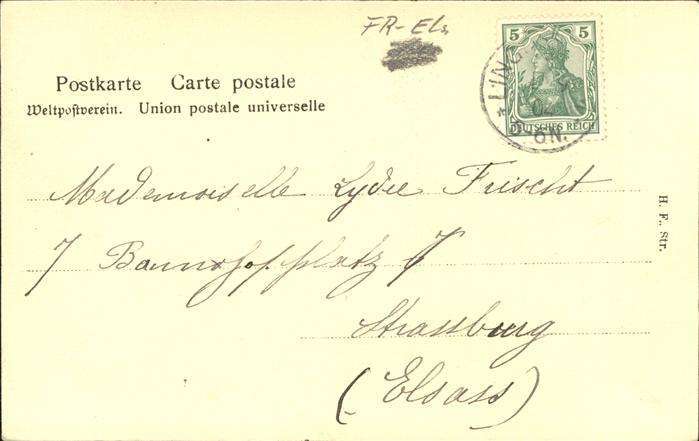 FR-Els
5 5
DEUTSCHES REICH
Postkarte Carte postale
Weltpostverein. Union postale universelle
Mademoiselle Lydie Frischt
7 Bahnhofplatz 7
Strassburg
(Elsass)
H. F., Str.